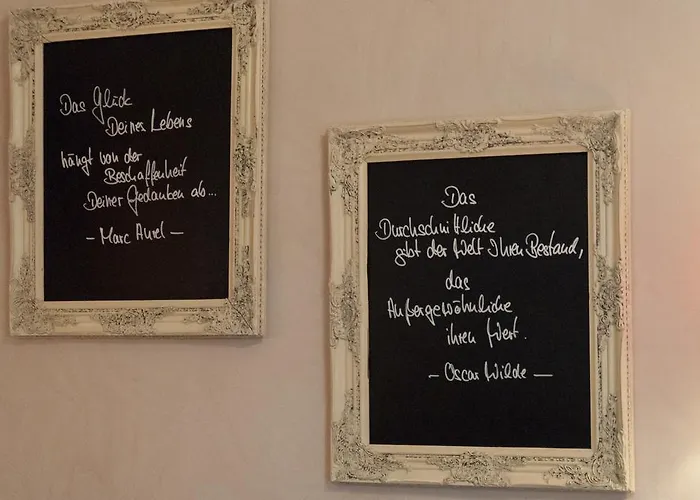 Das Glück
Deines Lebens
hängt von der
Beschaffenheit
Deiner Gedanken ab...
- Marc Aurel -
Das
Durchschnittliche
gibt der Welt Ihren Bestand,
das
Außergewöhnliche
ihren Wert.
- Oscar Wilde -